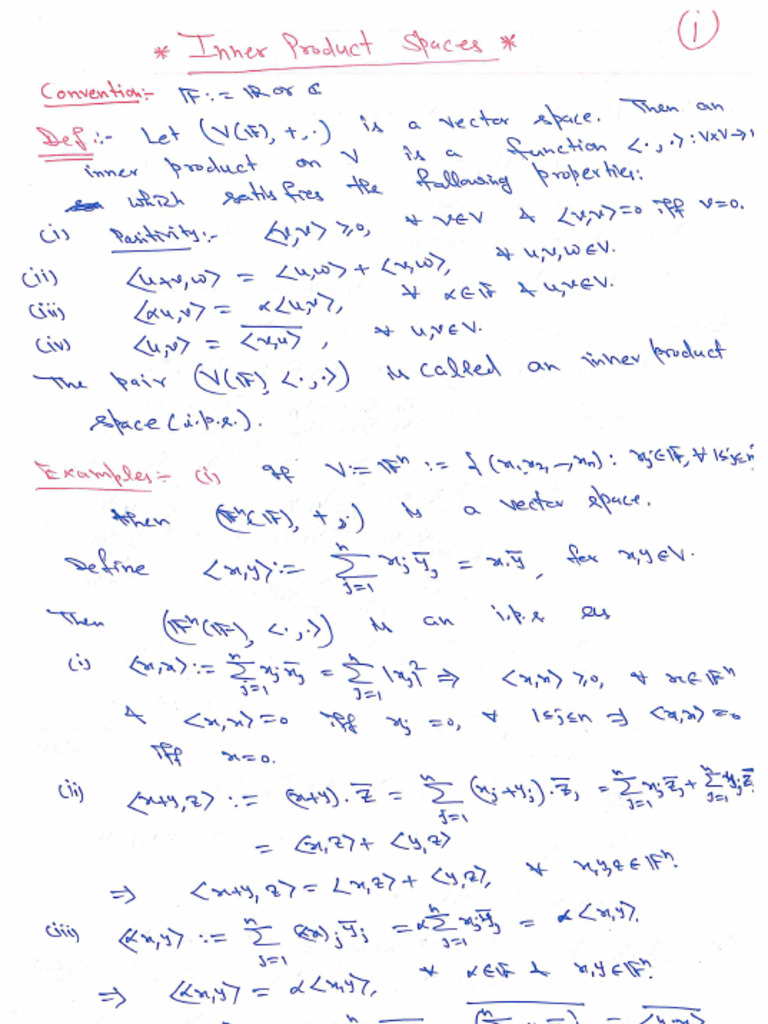 ①
* Inner Product Spaces *
Convention:- 𝔽 := ℝ or ℂ
Def:- Let (V(𝔽), +, ·) is a vector space. Then an
inner product on V is a function <·,·> : V×V →
which satisfies the following properties:
(i) Positivity:- <v,v> ≥0, ∀ v∈V & <v,v>=0 iff v=0.
(ii) <u+v,w> = <u,w> + <v,w>, ∀ u,v,w∈V.
(iii) <αu,v> = α<u,v>, ∀ α∈𝔽 & u,v∈V.
(iv) <u,v> = \overline{<v,u>}, ∀ u,v∈V.
The pair (V(𝔽), <·,·>) is called an inner product
space (i.p.s.).
Examples:- (i) If V := 𝔽ⁿ := {(x₁,x₂,→xₙ) : xⱼ∈𝔽, ∀ 1≤j≤n
then (𝔽ⁿ(𝔽), +,·) is a vector space.
Define <x,y> := \sum_{j=1}^{n} xⱼȳⱼ = x.ȳ, for x,y∈V.
Then (𝔽ⁿ(𝔽), <·,·>) is an i.p.s as
(i) <x,x> := \sum_{j=1}^{n} xⱼx̄ⱼ = \sum_{j=1}^{n} |xⱼ|² ⇒ <x,x> ≥0, ∀ x∈𝔽ⁿ
& <x,x>=0 iff xⱼ=0, ∀ 1≤j≤n ⇒ <x,x>=0
iff x=0.
(ii) <x+y,z> := (x+y).z̄ = \sum_{j=1}^{n} (xⱼ+yⱼ).z̄ⱼ = \sum_{j=1}^{n} xⱼz̄ⱼ + \sum_{j=1}^{n} yⱼz̄
= <x,z> + <y,z>
⇒ <x+y,z> = <x,z> + <y,z>, ∀ x,y,z∈𝔽ⁿ.
(iii) <αx,y> := \sum_{j=1}^{n} (αx)ⱼȳⱼ = α\sum_{j=1}^{n} xⱼȳⱼ = α<x,y>.
⇒ <αx,y> = α<x,y>, ∀ α∈𝔽 & x,y∈𝔽ⁿ.